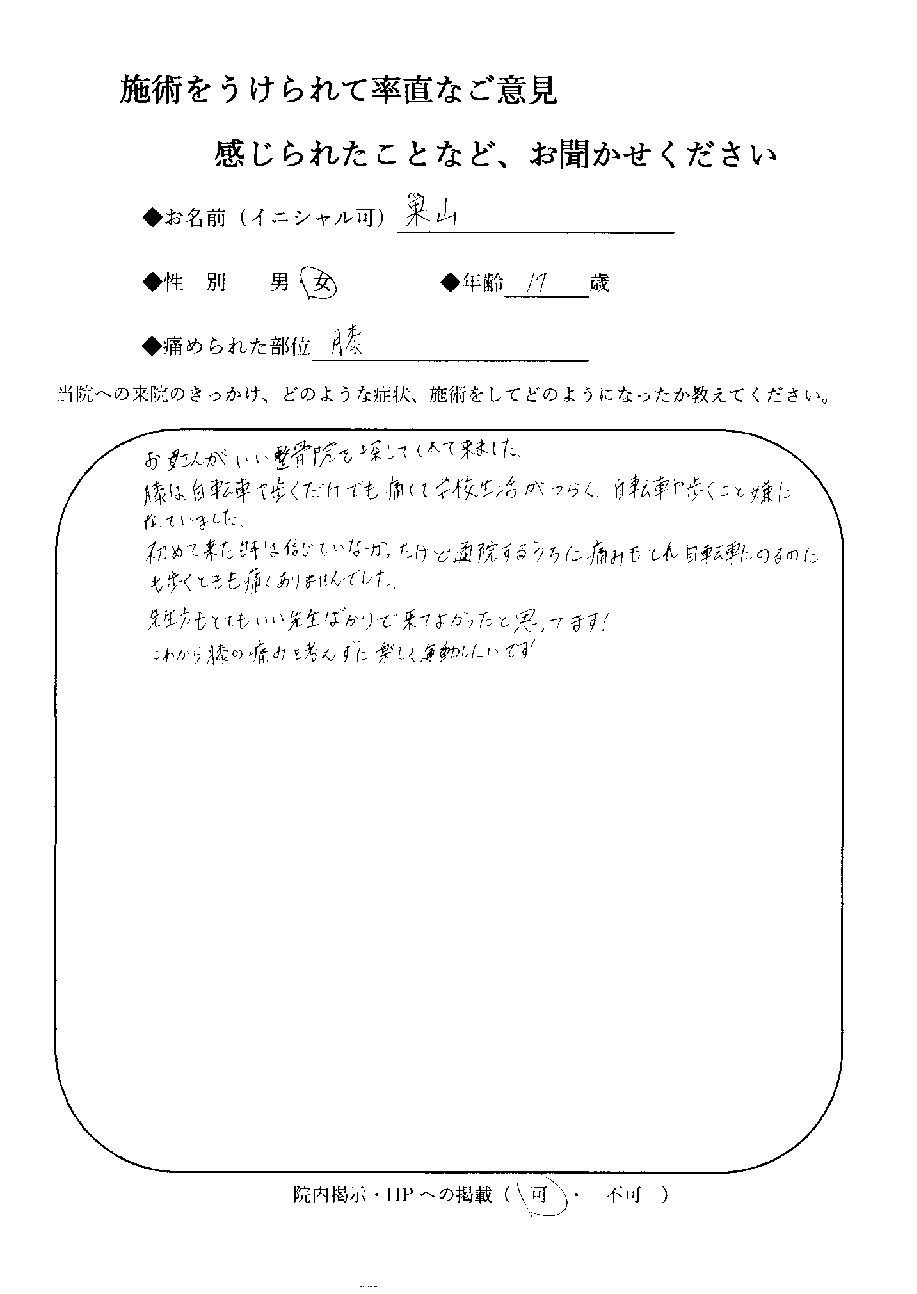 施術をうけられて率直なご意見
感じられたことなど、お聞かせください
◆お名前（イニシャル可） 巣山
◆性 別 男 女 ◆年齢 17 歳
◆痛められた部位 膝
当院への来院のきっかけ、どのような症状、施術をしてどのようになったか教えてください。
お母さんがいい整骨院を探してくれて来ました。
膝は自転車や歩くだけでも痛くて学校生活がつらく、自転車や歩くこと嫌に
なっていました。
初めて来た時は信じていなかったけど通院するうちに痛みもとれ自転車にのるのに
も歩くときも痛くありませんでした。
先生方もとてもいい先生ばかりで来てよかったと思ってます！
これから膝の痛みを考えずに楽しく運動したいです
院内掲示・HPへの掲載（ 可 ・ 不可 ）